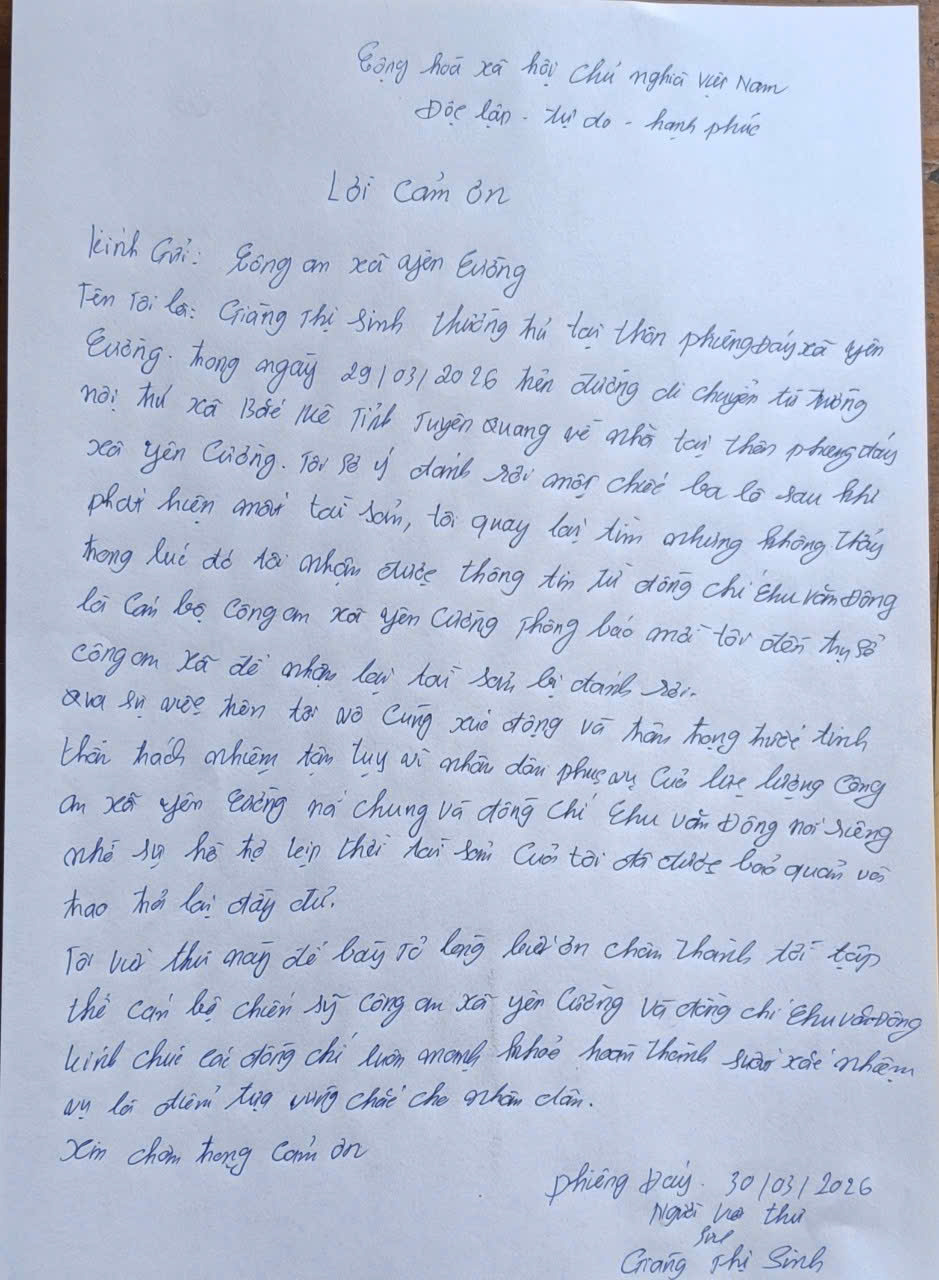 Cộng hoà xã hội chủ nghĩa Việt Nam
Độc lập - tự do - hạnh phúc
Lời cảm ơn
Kính Gửi: Công an xã Yên Cường
Tên Tôi là: Giàng Thị Sinh thường trú tại thôn phiêng Đáy xã yên
Cường. trong ngày 29/03/2026 trên đường di chuyển từ trường
nội trú xã Bắc Mê Tỉnh Tuyên Quang về nhà tại thôn phiêng đáy
xã yên Cường. Tôi sơ ý đánh rơi một chiếc ba lô sau khi
phát hiện mất tài sản, tôi quay lại tìm nhưng không thấy
trong lúc đó tôi nhận được thông tin từ đồng chí Chu Văn Đông
là Cán bộ Công an xã yên Cường Thông báo mời tôi đến trụ sở
công an xã để nhận lại tài sản bị đánh rơi.
Qua sự việc trên tôi vô Cùng xúc động và trân trọng trước tinh
thần trách nhiệm tận tụy vì nhân dân phục vụ Của lực lượng Công
an xã yên Cường nó chung và đồng chí Chu văn Đông nói riêng
nhờ sự hỗ trợ kịp thời tài sản Của tôi đã được bảo quản và
trao trả lại đầy đủ.
Tôi viết thư này để bày Tỏ lòng biết ơn chân thành tới tập
thể cán bộ chiến sỹ Công an xã yên Cường Và đồng chí Chu văn Đông
kính chúc các đồng chí luôn mạnh khoẻ hoàn thành xuất xắc nhiệm
vụ là điểm tựa vững chắc cho nhân dân.
Xin chân trọng Cảm ơn
phiêng Đáy. 30/03/2026
Người viết thư
Giàng Thị Sinh